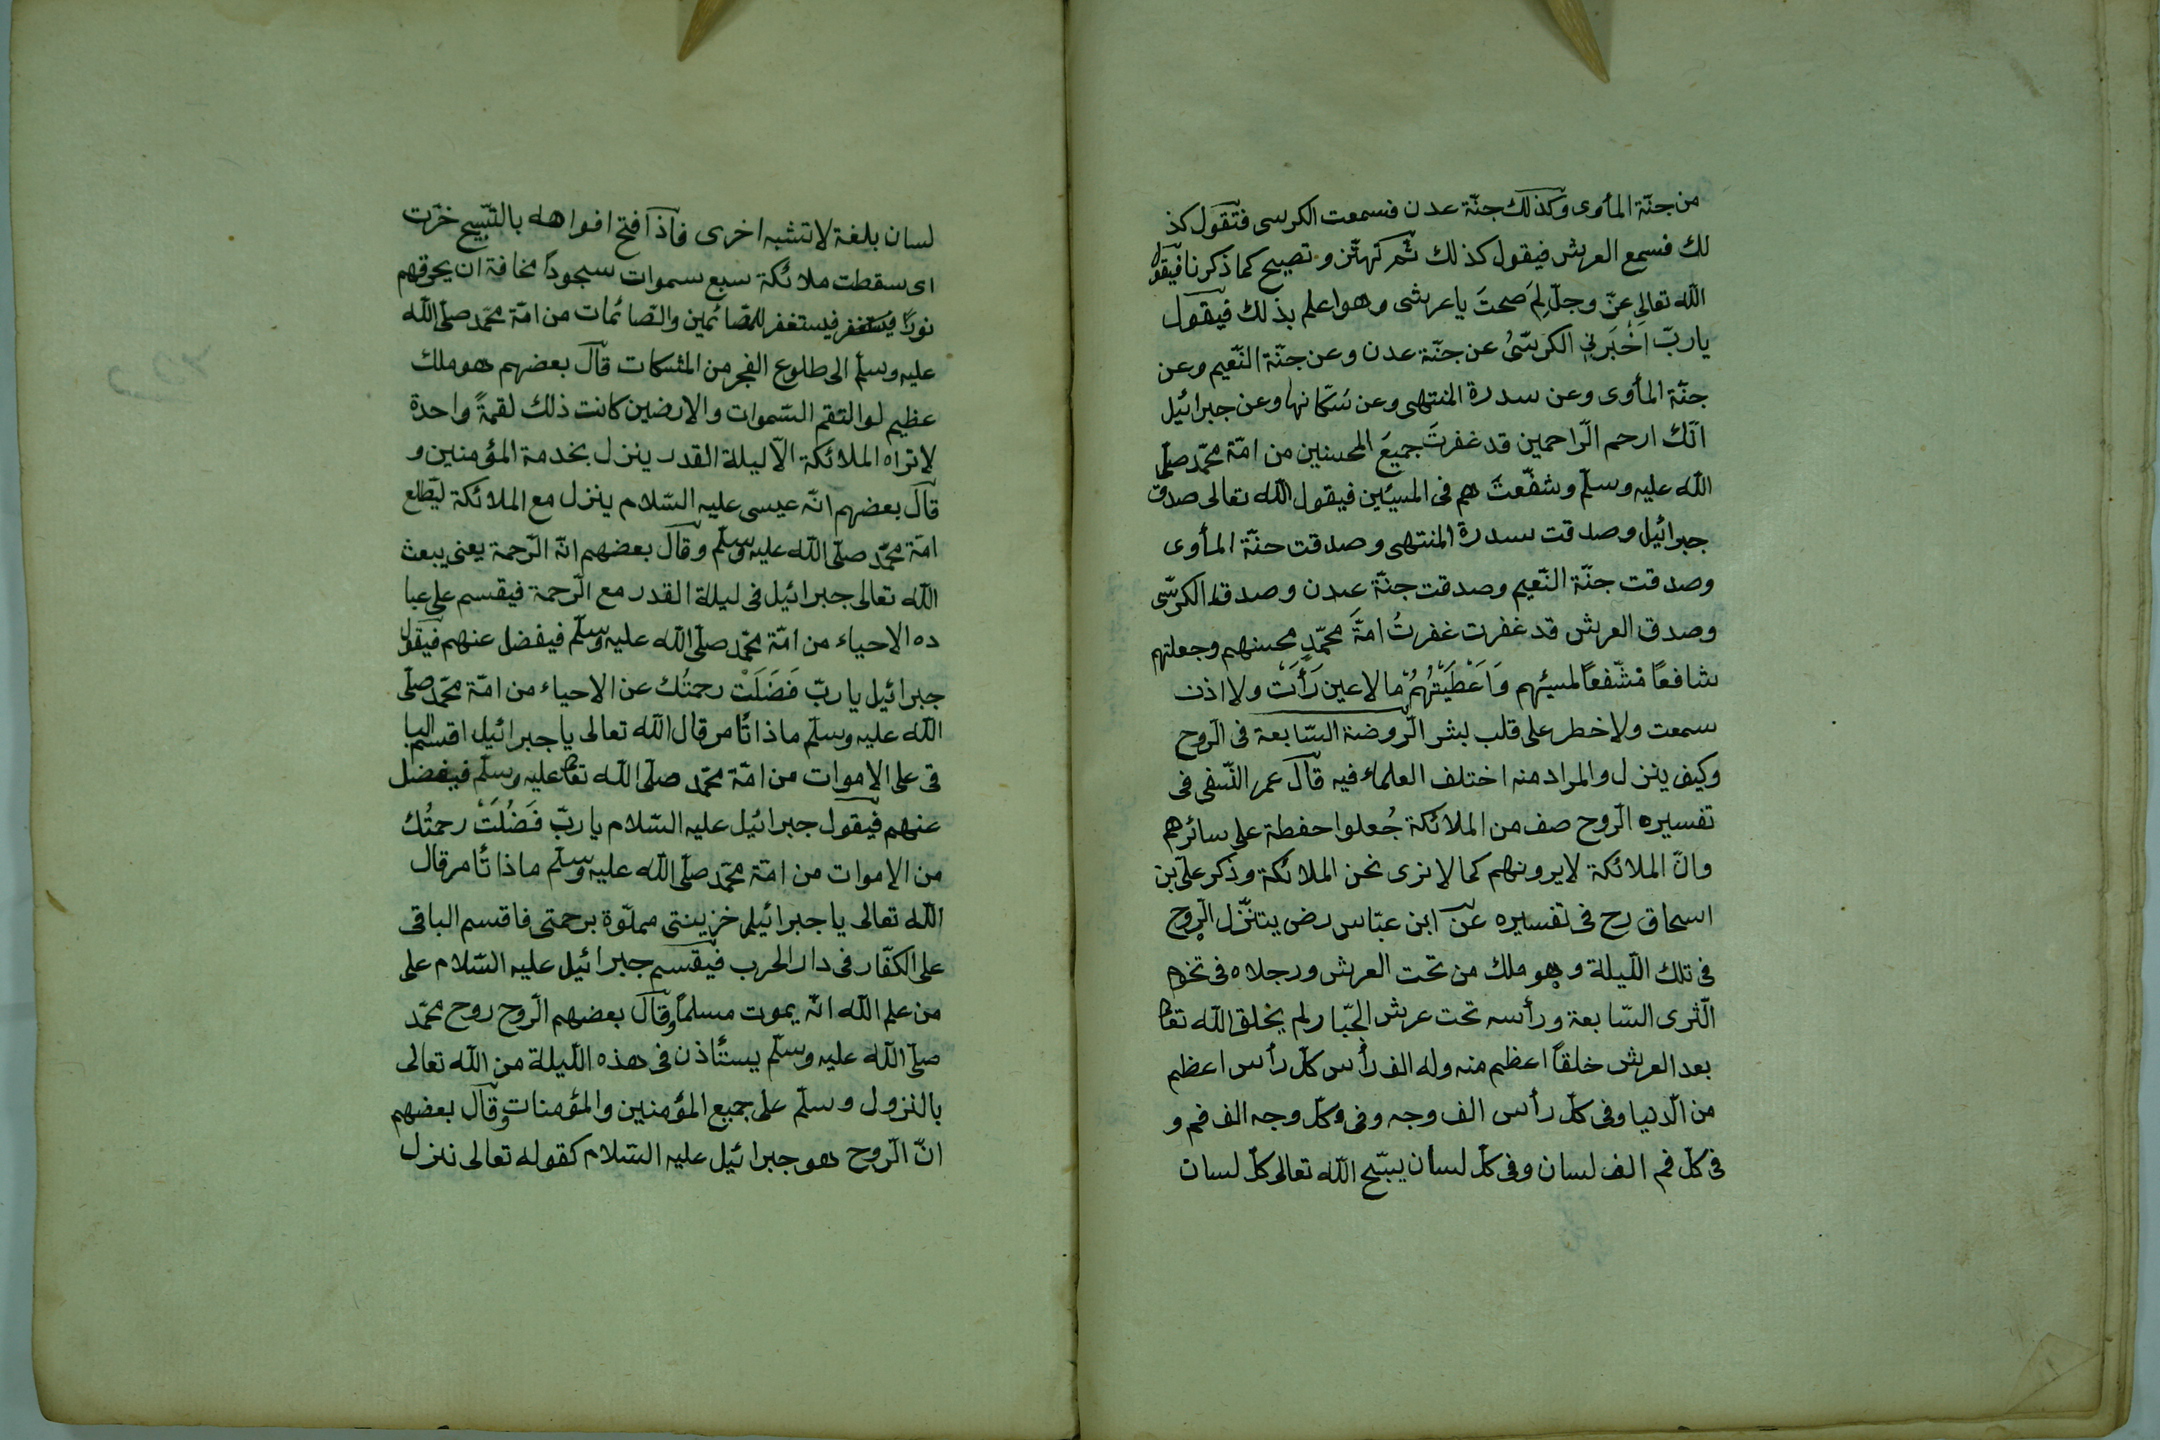 من جنّة المأوى وكذلك جنّة عدن فسمعت الكرسى فتقول كذ
لك فسمع العرش فيقول كذلك ثم تهتزّ وتصيح كما ذكرنا فيقول
الله تعالى عزّ وجلّ لِمَ صحتَ يا عرشى وهو اعلم بذلك فيقول
يا ربّ اَخْبَرنِي الكرسّىُ عن جنّة عدن وعن جنّة النّعيم وعن
جنّة المأوى وعن سدرة المنتهى وعن سُكّانها وعن جبرائيل
انّك ارحم الرّاحمين قد غفرتَ جميعَ المحسنين من امّة محمّد صلّى
الله عليه وسلّم وشفّعتَ هم فى المسيئين فيقول الله تعالى صدق
جبرائيل وصدقت سدرة المنتهى وصدقت جنّة المأوى
وصدقت جنّة النّعيم وصدقت جنّة عدن وصدقط الكرسّى
وصدق العرش قد غفرت غفرتُ امّةَ محمّدٍ محسنهم وجعلتهم
شافعًا مُشَفّعًا لمسيئهم وَاَعْطَيْتُهُمْ ما لا عين رَأَتْ ولا اذن
سمعت ولا خطر على قلب بشر الرّوضة السّابعة فى الرّوح
وكيف ينزل والمراد منه اختلف العلماء فيه قال عمر النّسفى فى
تفسيره الرّوح صف من الملائكة جُعلوا حفظة على سائرهم
وانّ الملائكة لا يرونهم كما لا نرى نحن الملائكة وذكر علىّ بن
اسحاق رح فى تفسيره عن ابن عبّاس رض يتنزّل الرّوح
فى تلك اللّيلة وهو ملك من تحت العرش ورجلاه فى تخوم
الثّرى السّابعة ورأسه تحت عرش الجبّار لم يخلق الله تعا
بعد العرش خلقًا اعظم منه وله الف رأس كلّ رأس اعظم
من الدّنيا وفى كلّ رأس الف وجه وفى وكلّ وجه الف فم و
فى كلّ فم الف لسان وفى كلّ لسان يسبّح الله تعالى كلّ لسان
لسان بلغة لا تشبه اخرى فاذا فتح افواهه بالتّسبيح خرّت
اى سقطت ملائكة سبع سموات سجودًا مخافة ان يحرقهم
نورًا فيستغفر للصّائمين والصّائمات من امّة محمّد صلّى الله
عليه وسلّم الى طلوع الفجر من المشكات قال بعضهم هو ملك
عظيم لو التقم السّموات والارضين كانت ذلك لقمةً واحدة
لا تراه الملائكة الّا ليلة القدر ينزل بخدمة المؤمنين و
قال بعضهم انّه عيسى عليه السّلام ينزل مع الملائكة ليطّلع
امّة محمّد صلّى الله عليه وسلّم وقال بعضهم انّه الرّحمة يعنى يبعث
الله تعالى جبرائيل فى ليلة القدر مع الرّحمة فيقسم على عبا
ده الاحياء من امّة محمّد صلّى الله عليه وسلّم فيفضل عنهم فيقول
جبرائيل يا ربّ فَضَلَتْ رحمتُك عن الاحياء من امّة محمّد صلّى
الله عليه وسلّم ماذا تأمر قال الله تعالى يا جبرائيل اقسم البا
قى على الاموات من امّة محمّد صلّى الله تعا عليه وسلّم فيفضل
عنهم فيقول جبرائيل عليه السّلام يا ربّ فَضُلَتْ رحمتُك
من الاموات من امّة محمّد صلّى الله عليه وسلّم ماذا تأمر قال
الله تعالى يا جبرائيل خزينتى مملوّة برحمتى فاقسم الباقى
على الكفّار فى دار الحرب فيقسم جبرائيل عليه السّلام على
من علم الله انّه يموت مسلمًا وقال بعضهم الرّوح روح محمّد
صلّى الله عليه وسلّم يستأذن فى هذه اللّيلة من الله تعالى
بالنزول وسلّم على جميع المؤمنين والمؤمنات وقال بعضهم
انّ الرّوح هو جبرائيل عليه السّلام كقوله تعالى نزل